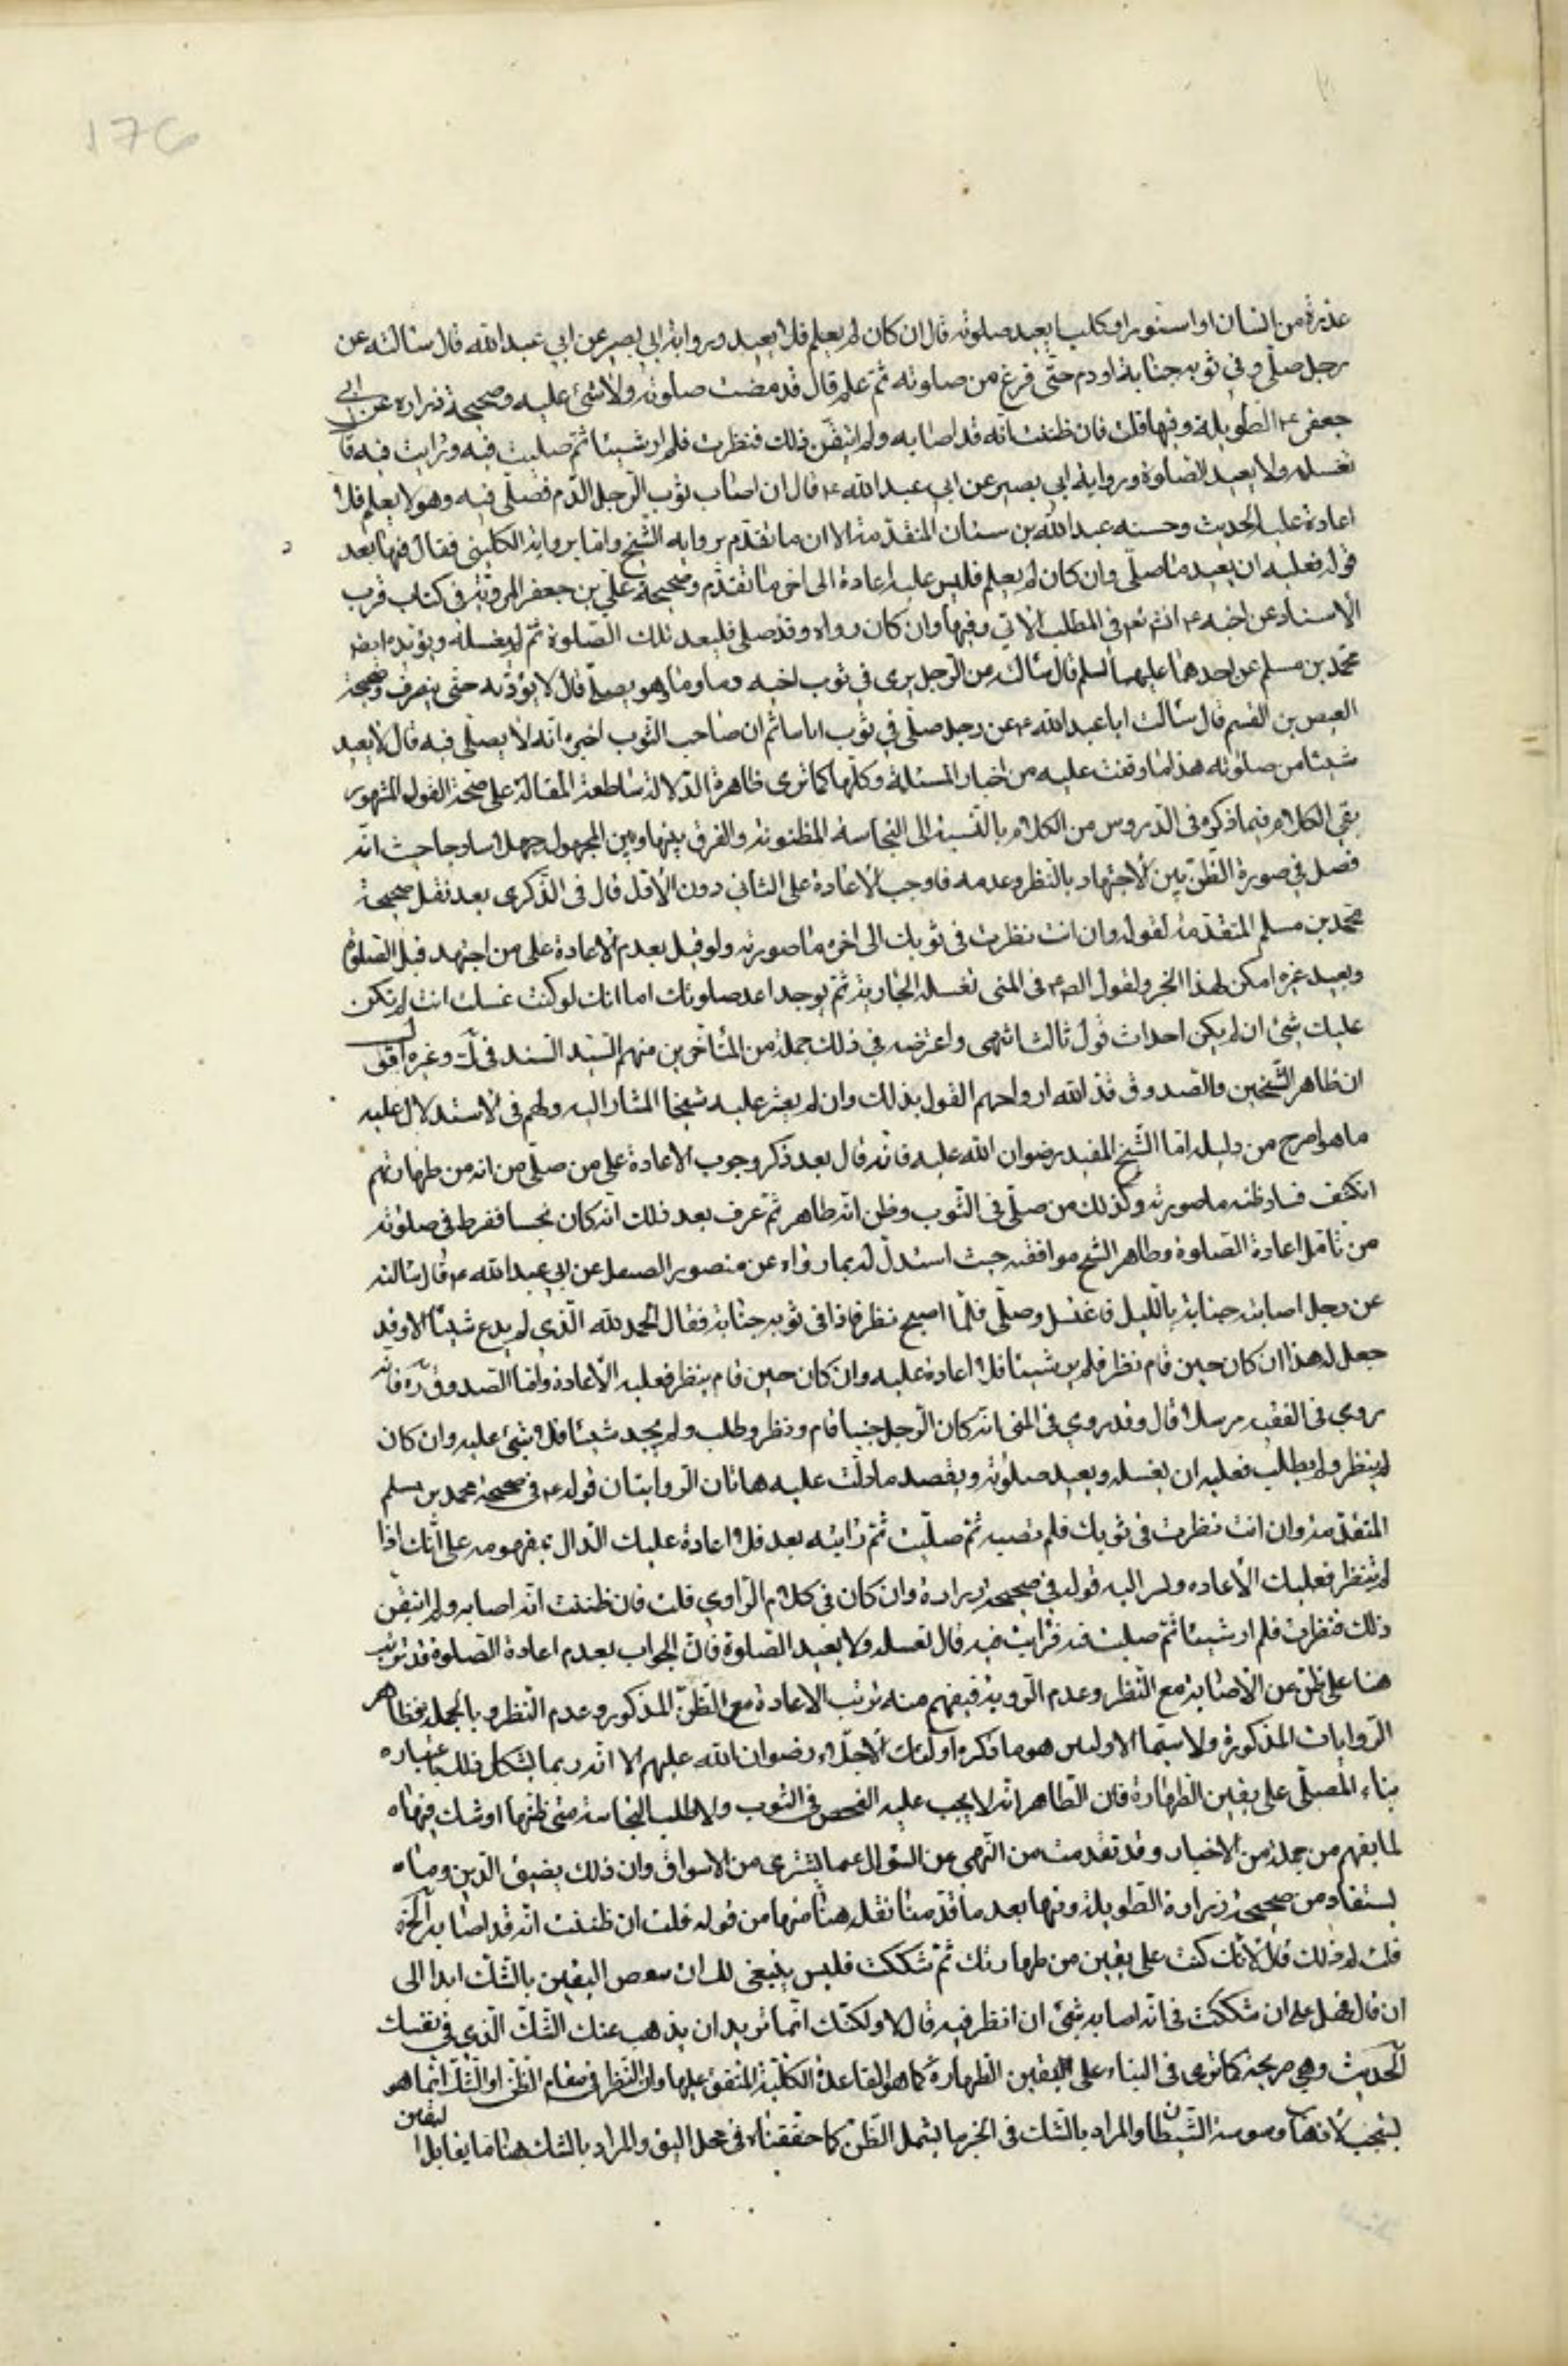 176
عذرة من انسان او سنور او كلب ايعيد صلوته قال ان كان لم يعلم فلا يعيد ورواية ابي بصير عن ابي عبد الله قال سئالته عن
رجل صلّى وفي ثوبه جنابة او دم حتّى فرغ من صلوته ثمّ علم قال قد مضت صلوته ولا شئ عليه وصحيحة زرارة عن ابي
جعفر ع الطّويلة وفيها قلت فان ظننت انّه قد اصابه ولم اتيقّن ذلك فنظرت فلم ار شيئا ثمّ صليت فيه فرايت فيه قا
تغسله ولا يعيد الصّلوة ورواية ابي بصير عن ابي عبد الله ع قال ان اصاب ثوب الرّجل الدّم فصلّى فيه وهو لا يعلم فلا
اعادة عليه الحديث وحسنه عبد الله بن سنان المتقدّمة الا ان ما تقدّم بروايه الشّيخ وامّا برواية الكليني فقال فيها بعد
قوله فعليه ان يعيد ما صلّى وان كان لم يعلم فليس عليه اعادة الى اخر ما تقدّم وصحيحة علي بن جعفر المرويّة في كتاب قرب
الاسناد عن اخيه ع في المطلب الاتي وفيها وان كان رواه وقد صلى فليعد تلك الصّلوة ثم ليغسله ويؤيده ايضا
محمّد بن مسلم عن احدهما عليهما السلم قال سئالته عن الرّجل يرى في ثوب اخيه دما وهو يصلّي قال لا يؤذنه حتى ينصرف وصحيحة
العيص بن القسم قال سئالت ابا عبد الله ع عن رجل صلّى في ثوب اياما ثم ان صاحب الثّوب اخبره انّه لا يصلّى فيه قال لا يعيد
شيئا من صلوته هذا ما وقفت عليه من اخبار المسئلة وكلّها كما ترى ظاهرة الدّلالة ساطعة المقالة على صحّة القول المشهور
بقى الكلام فيما ذكره في الدّروس من الكلام بالنّسبة الى النّجاسة المظنونة والفرق بينها وبين المجهولة جهلا ساذجا حيث انّه
فصل في صورة الظّن بين الاجتهاد بالنّظر وعدمه فاوجب الاعادة على الثاني دون الاوّل قال في الذّكرى بعد نقل صحيحة
محمّد بن مسلم المتقدّمة لقوله وان انت نظرت في ثوبك الى اخره ما صورته ولو قيل بعدم الاعادة على من اجتهد قبل الصّلوة
ويعيد غيره امكن لهذا الخبر ولقول الص ع في المنى تغسله الجارية ثمّ يوجد اعد صلوتك اما انك لو كنت غسلت انت لم تكن
عليك شئ ان لم يكن احداث قول ثالث انتهى واعترضه في ذلك جملة من المتاخّرين منهم السّيّد السّند في ك وغيره اقول
ان ظاهر الشّيخين والصّدوق قدّس الله ارواحهم القول بذلك وان لم يعثر عليه شيخنا المشار اليه ولهم في الاستدلال عليه
ما هو اصرح من دليله امّا الشّيخ المفيد رضوان الله عليه فانّه قال بعد ذكر وجوب الاعادة على من صلّى من انه من طهارة ثم
انكشف فساد ظنه ما صورته وكذلك من صلّى في الثّوب وظن انّه طاهر ثمّ عرف بعد ذلك انّه كان نجسا ففرط في صلوته
من تامّل اعادة الصّلوة وظاهر الشّيخ موافقته حيث استدلّ له بما رواه عن منصور الصيقل عن ابي عبد الله ع قال سئالته
عن رجل اصابته جنابة بالليل فاغتسل وصلّى فلمّا اصبح نظر فاذا في ثوبه جنابة فقال الحمد لله الّذي لم يدع شيئا الا وقد
جعل له هذا ان كان حين قام نظر فلم ير شيئا فلا اعادة عليه وان كان حين قام ينظر فعليه الاعادة وامّا الصّدوق ره فانّه
روى في الفقيه مرسلا قال وقد روي في المنى انّه كان الرّجل جنبا قام ونظر وطلب ولم يجد شيئا فلا شئ عليه وان كان
لم ينظر ولم يطلب فعليه ان يغسله ويعيد صلوته ويعضد ما دلّت عليه هاتان الرّوايتان قوله ع في صحيحة محمد بن مسلم
المتقدّمة وان انت نظرت في ثوبك فلم تصبه ثمّ صلّيت ثمّ رايته بعد فلا اعادة عليك الدّال بمفهومه على انّك اذا
لم تنظر فعليك الاعاده وليه قوله في صحيحة زرارة وان كان في كلام الرّاوي قلت فان ظننت انّه اصابه ولم اتيقّن
ذلك فنظرت فلم ار شيئا ثمّ صليت فيه فرايت فيه قال تغسله ولا يعيد الصّلوة فانّ الجواب بعدم اعادة الصّلوة قد ترتب
هنا على ظن عن الاصابة مع النّظر وعدم الرّوية فيفهم منه ترتب الاعادة مع الظّن المذكور وعدم النّظر وبالجملة فظاهر
الرّوايات المذكورة ولا سيّما الاوليين هو ما ذكره اولئك الاجلّاء رضوان الله عليهم الا انّه ربما يشكل ذلك باعتباره
بناء المصلّى على يقين الطّهارة فان الظّاهر انّه لا يجب عليه الفحص في الثوب ولا طلب النّجاسة متى ظنّها او شك فيها
لما يفهم من جملة من الاخبار وقد تقدمت من النّهى عن السّؤال عمّا يشترى من الاسواق وان ذلك يضيق الدّين وما
يستفاد من صحيحة زرارة الطّويلة وفيها بعد ما قدّمنا نقله هنا منها من قوله قلت ان ظننت انّه قد اصابه الخ
قلت لم ذلك قال لانّك كنت على يقين من طهارتك ثمّ شككت فليس ينبغى لك ان تنقض اليقين بالشّك ابدا الى
ان قال فهل علي ان شككت في انّه اصابه شئ ان انظر فيه قال لا ولكنّك انّما تريد ان يذهب عنك الشّك الّذي في نفسك
الحديث وهي صريحة كما ترى في البناء على يقين الطّهارة كما هو القاعدة الكلّيّة المتّفق عليها وان النّظر في مقام الظّن او الشّك انّما هو
يستحب لاذهاب وسوسة الشّيطان والمراد بالشّك في الخبر ما يشمل الظّن كما حقّقناه في محل اليق والمراد بالشك هنا ما يقابل اليقين